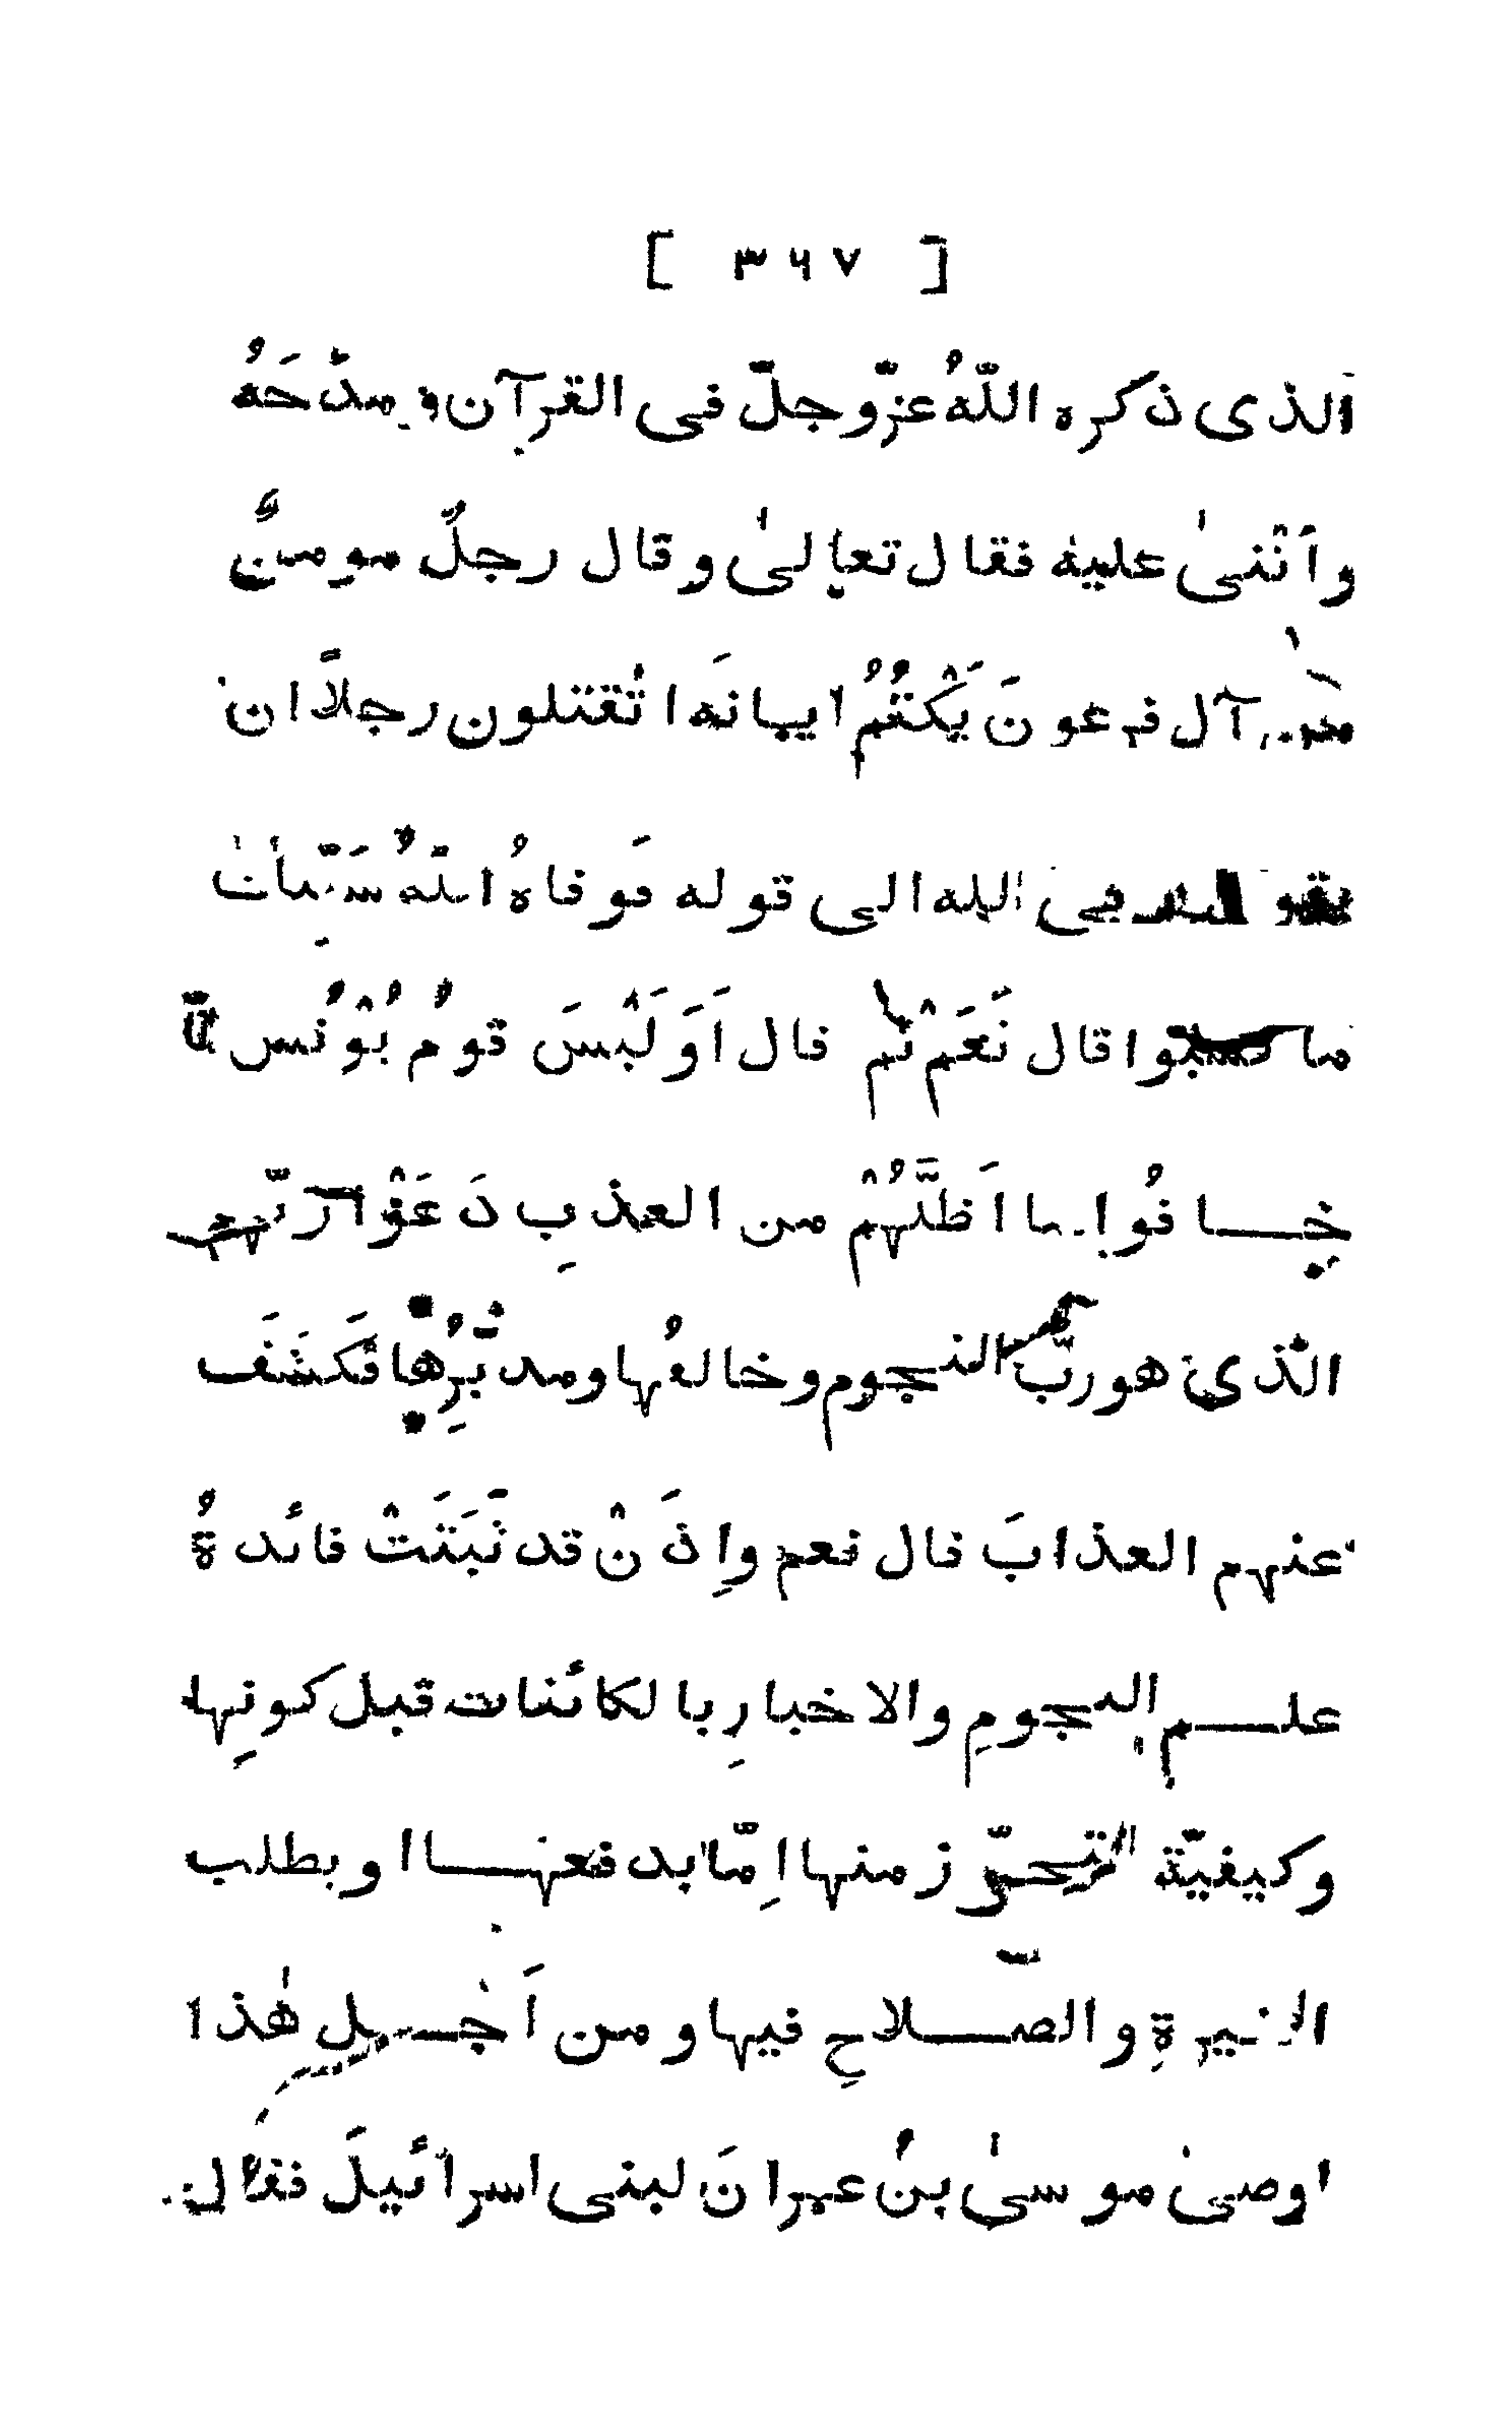 [ ٣٦٧ ]
الذى ذكره اللّهُ عزّوجلّ فى القرآن و مدَحَهُ
واَثْنىٰ عليه فقال تعالىٰ وقال رجلٌ مومنٌ
من آل فرعونَ يَكْتُمُ ايمانَه اتَقتلون رجلاً ان
يقول ربى الله الى قوله فَوقاهُ اللّهُ سَيِّئاتِ
ما كسبوا قال نَعَمْ ثم قال اَوَلَيْسَ قومُ يُوْنُس لمّا
خافُوا ما اَظلَّهُمْ من العذبِ دَعَوْا ربّهم
الّذى هو ربّ النجوم وخالقُها ومدبّرُها فَكَشَفَ
عنهم العذابَ قال نعم واِذَنْ قد ثَبَتَتْ فائدةُ
علم النجومِ والاخبارِ بالكائنات قبل كونِها
وكيفيّة التحرّز منها اِمّا بدفعها او بطلب
الخيرةِ والصّلاحِ فيها ومن اَجلِ هٰذا
اوصىٰ موسىٰ بنُ عمرانَ لبنى اسرائيلَ فقال